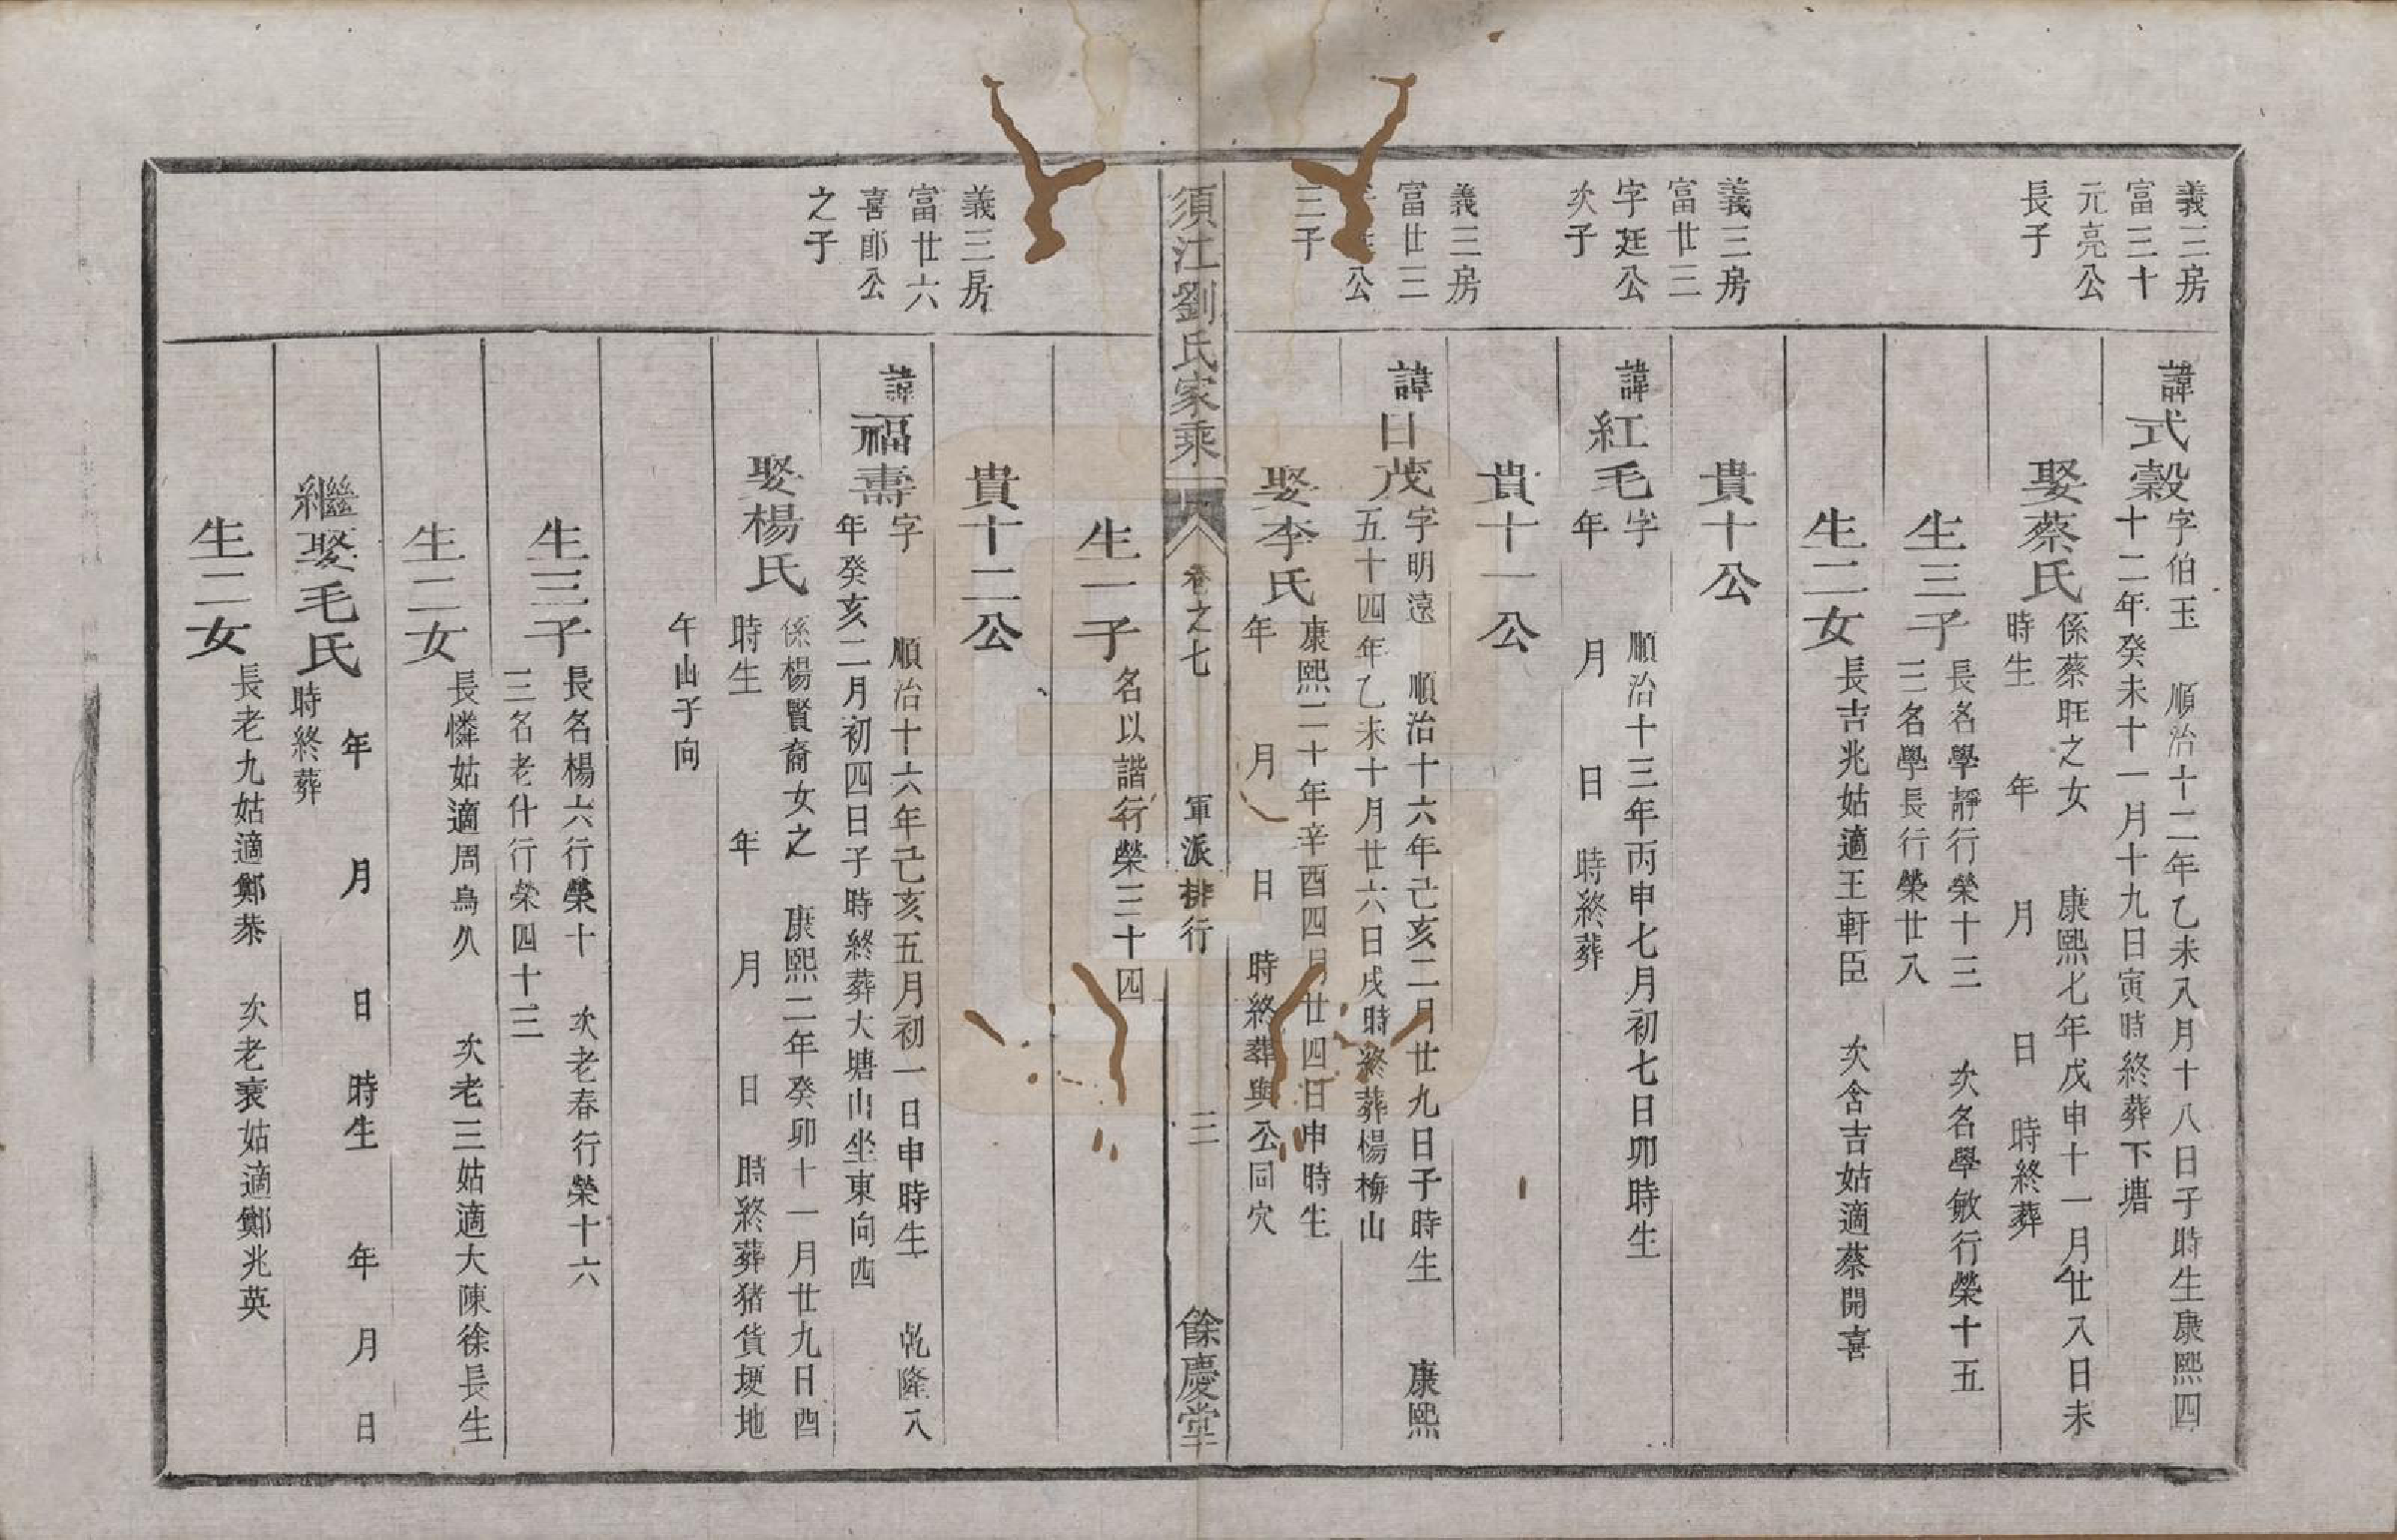 義三房
富三十
元亮公
長子
諱式穀字伯玉　順治十二年乙未八月十八日子時生康熙四
十二年癸未十一月十九日寅時終葬下塘
娶蔡氏係蔡旺之女　康熙七年戊申十一月廿八日未
時生　年　月　日　時終葬
生三子長名學靜行榮十三　次名學敏行榮十五
三名學長行榮廿八
生二女長吉兆姑適王軒臣　次含吉姑適蔡開喜
義三房
富廿三
字廷公
次子
貴十公
諱紅毛字　順治十三年丙申七月初七日卯時生
年　月　日　時終葬
義三房
富廿三
公
三子
貴十一公
諱日茂字明遠　順治十六年己亥二月廿九日子時生　康熙
五十四年乙未十月廿六日戌時終葬楊梅山
娶李氏康熙二十年辛酉四月廿四日申時生
年　月　日　時終葬與公同穴
須江劉氏家乘　卷之七　軍派排行　三　餘慶堂
生一子名以諧行榮三十四
義三房
富廿六
喜郎公
之子
貴十二公
諱福壽字　順治十六年己亥五月初一日申時生　乾隆八
年癸亥二月初四日子時終葬大塘山坐東向西
娶楊氏係楊賢裔女之　康熙二年癸卯十一月廿九日酉
時生　年　月　日　時終葬猪貨埂地
午山子向
生三子長名楊六行榮十　次老春行榮十六
三名老什行榮四十三
生二女長憐姑適周烏久　次老三姑適大陳徐長生
繼娶毛氏　年　月　日　時生　年　月　日
時終葬
生二女長老九姑適鄭恭　次老衰姑適鄭兆英